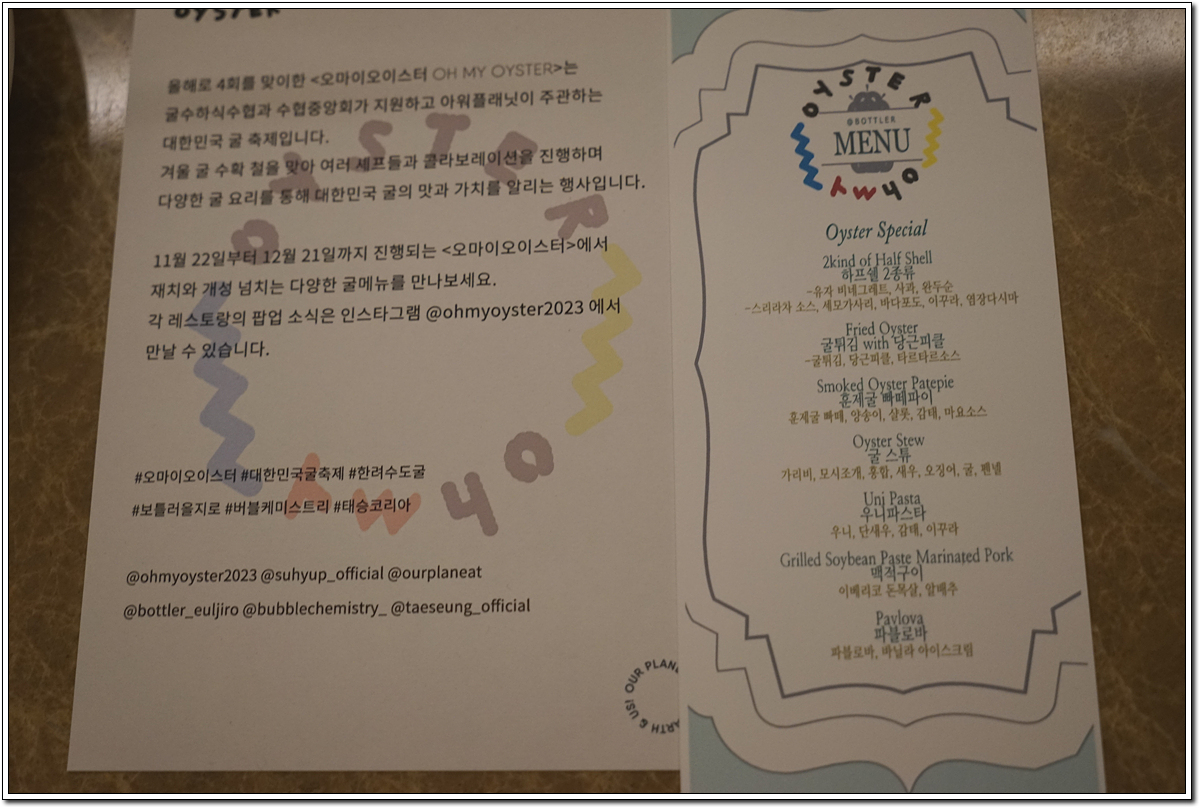 OYSTER
올해로 4회를 맞이한 <오마이오이스터 OH MY OYSTER>는
굴수하식수협과 수협중앙회가 지원하고 아워플래닛이 주관하는
대한민국 굴 축제입니다.
겨울 굴 수확 철을 맞아 여러 셰프들과 콜라보레이션을 진행하며
다양한 굴 요리를 통해 대한민국 굴의 맛과 가치를 알리는 행사입니다.
11월 22일부터 12월 21일까지 진행되는 <오마이오이스터>에서
재치와 개성 넘치는 다양한 굴메뉴를 만나보세요.
각 레스토랑의 팝업 소식은 인스타그램 @ohmyoyster2023 에서
만날 수 있습니다.
OYSTER
OH MY
#오마이오이스터 #대한민국굴축제 #한려수도굴
#보틀러을지로 #버블케미스트리 #태승코리아
@ohmyoyster2023 @suhyup_official @ourplaneat
@bottler_euljiro @bubblechemistry_ @taeseung_official
OUR PLAN
ARTH & US!
OYSTER
@BOTTLER
MENU
OH MY
Oyster Special
2kind of Half Shell
하프쉘 2종류
-유자 비네그레트, 사과, 완두순
-스리라차 소스, 세모가사리, 바다포도, 이꾸라, 염장다시마
Fried Oyster
굴튀김 with 당근피클
-굴튀김, 당근피클, 타르타르소스
Smoked Oyster Patepie
훈제굴 빠떼파이
훈제굴 빠떼, 양송이, 샬롯, 감태, 마요소스
Oyster Stew
굴 스튜
가리비, 모시조개, 홍합, 새우, 오징어, 굴, 펜넬
Uni Pasta
우니파스타
우니, 단새우, 감태, 이꾸라
Grilled Soybean Paste Marinated Pork
맥적구이
이베리코 돈목살, 알배추
Pavlova
파블로바
파블로바, 바닐라 아이스크림